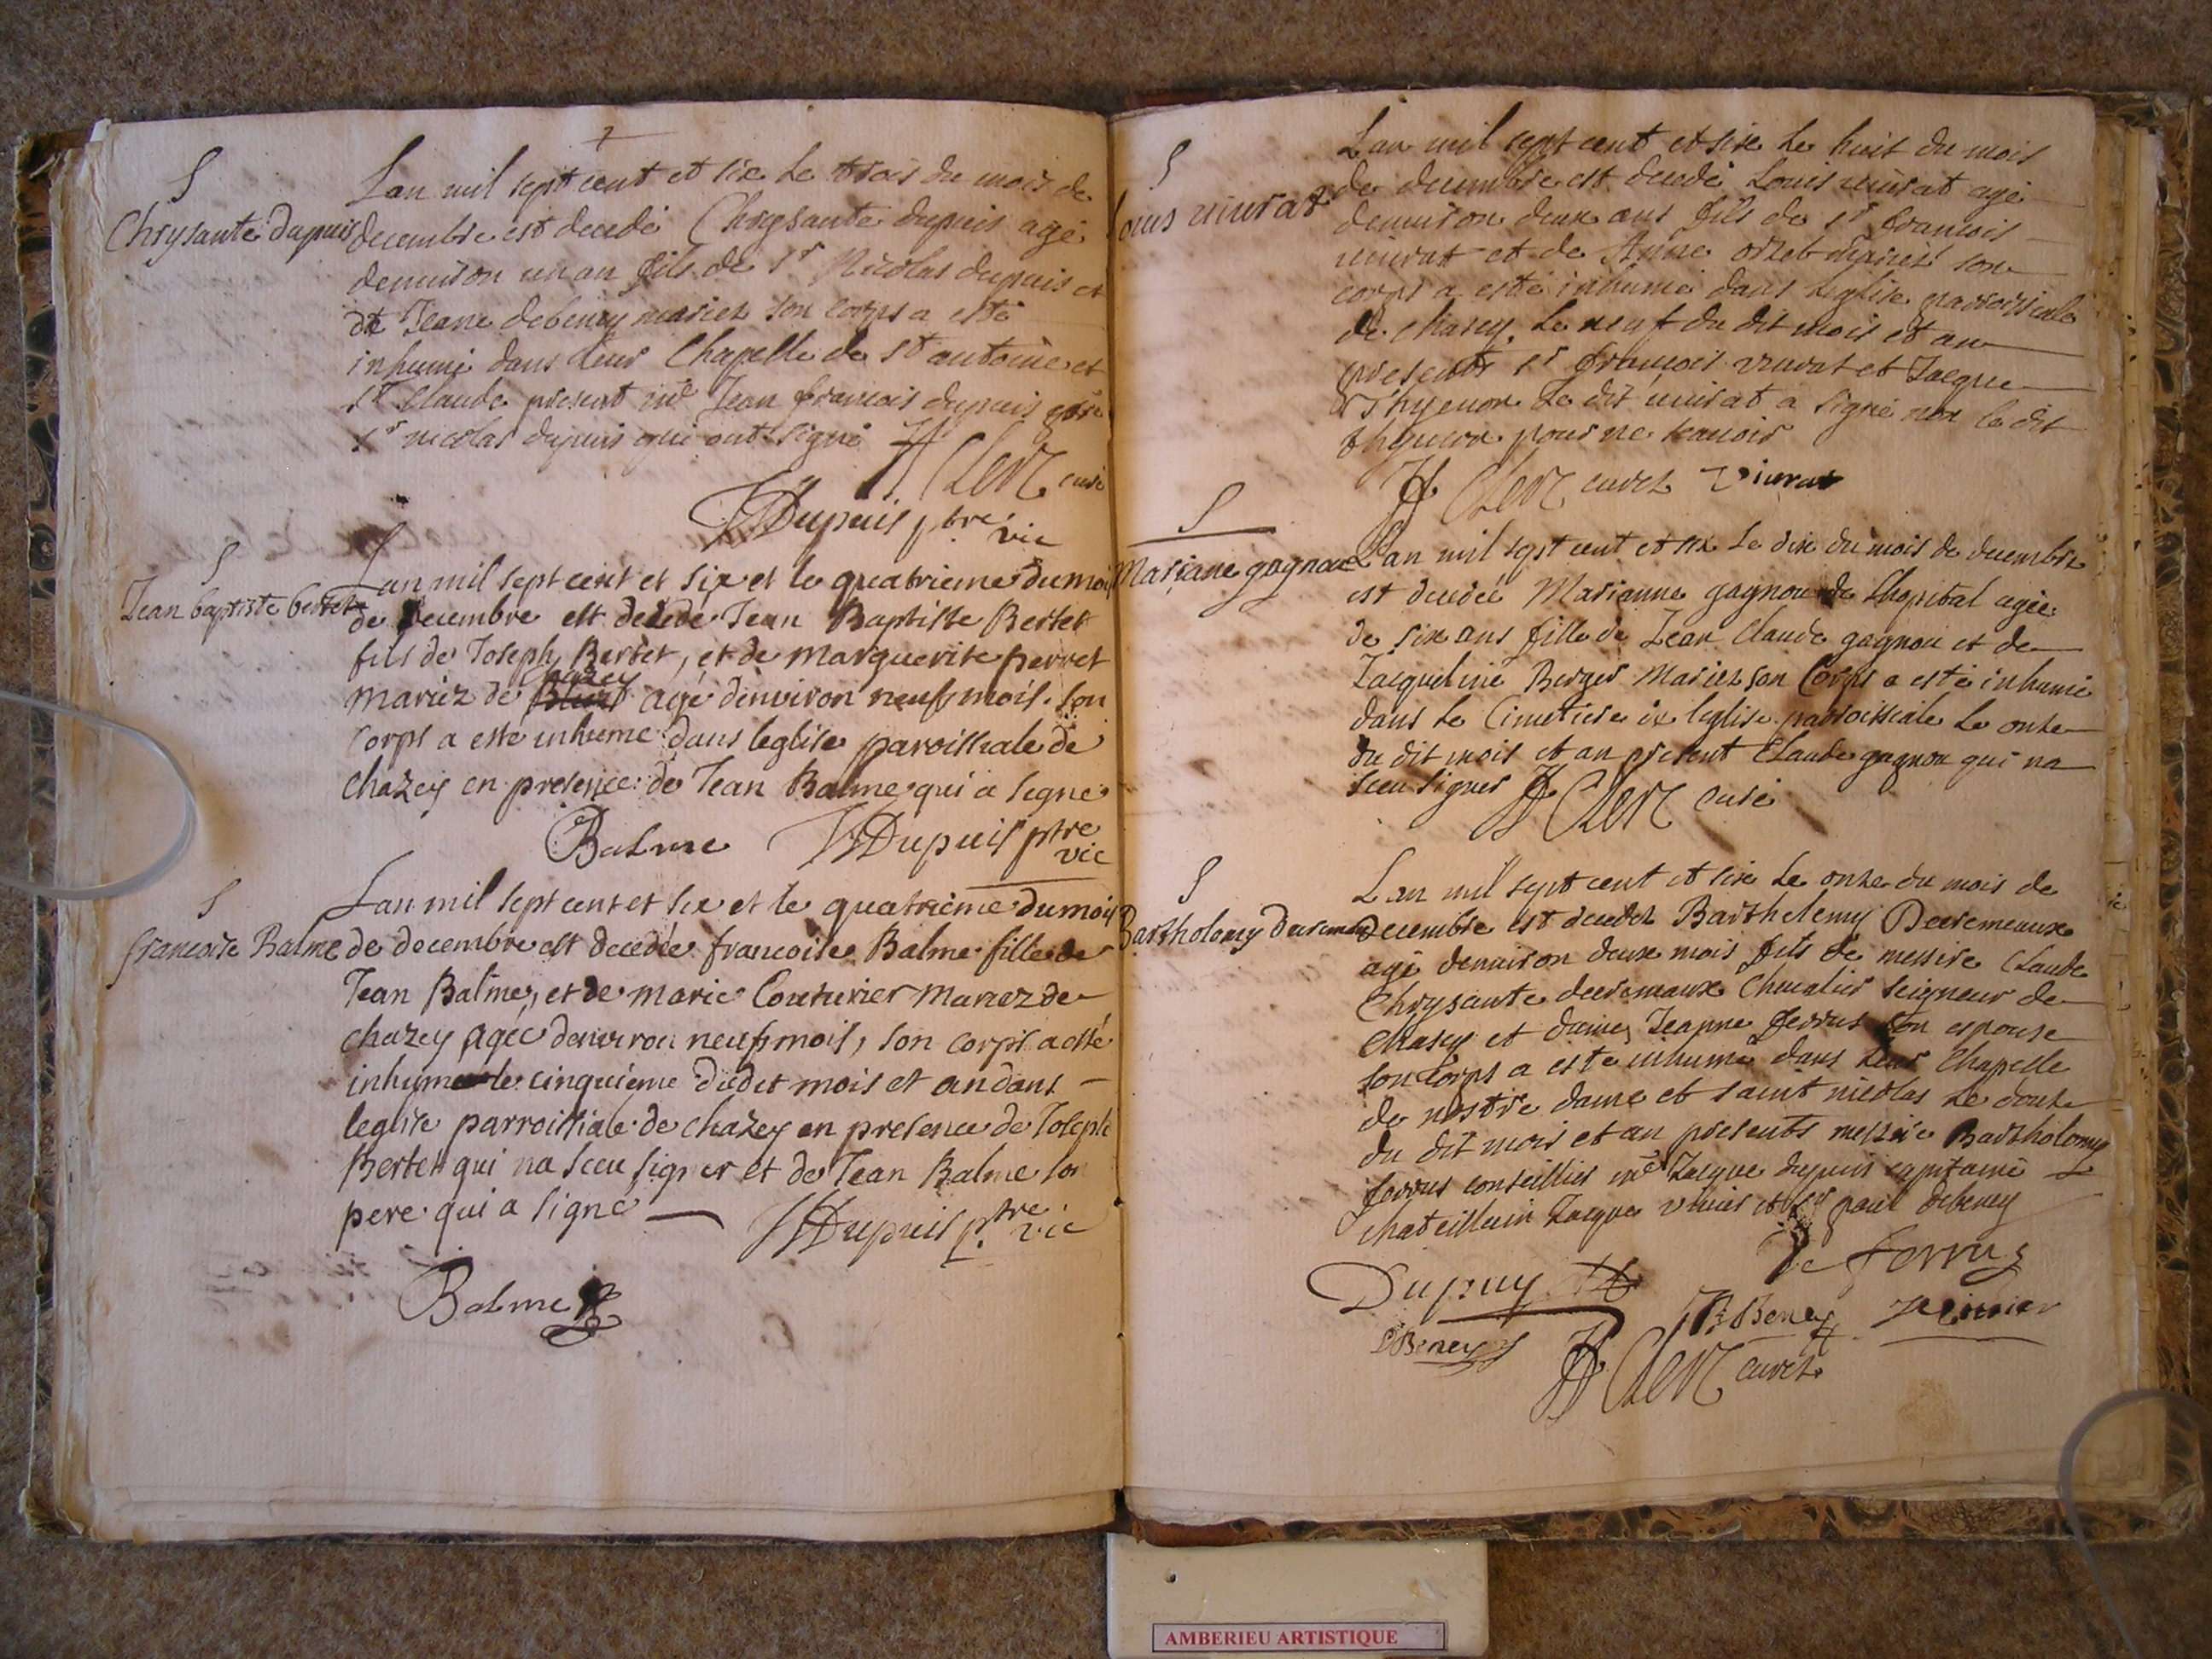 S
Chrysante dupuis
Lan mil sept cent et six le trois du mois de
decembre est decedé Chrysante dupuis agé
denuiron un an fils de Sr Nicolas dupuis et
de Jeane debeney mariez son corps a esté
inhumé dans leur Chapelle de St antoine et
St Claude present Me Jean francois dupuis
Sr nicolas dupuis qui ont signé
Clerc curé
Dupuis ptre
vic
S
Jean baptiste bertet
Lan mil sept cent et six et le quatrieme du mois
de decembre est decedé Jean Baptiste Bertet
fils de Joseph Bertet, et de marguerite perret
chazey
mariez de agé denviron neuf mois. son
corps a esté inhumé dans leglise paroissiale de
chazey en presence de Jean Balme qui a signé
Balme Dupuis ptre
vic
S
francoise Balme
Lan mil sept cent et six et le quatrieme du mois
de decembre est decedée francoise Balme fille de
Jean Balme, et de marie Couturier mariez de
chazey agée denviron neuf mois, son corps a esté
inhumé le cinquieme dudit mois et an dans
leglise parroissiale de chazey en presence de Joseph
Bertet qui na sceu signer et de Jean Balme son
pere qui a signé
Dupuis ptre vic
Balme
S
Louis uiurat
Lan mil sept cent et six le huit du mois
de decembre est decedé Louis uiurat agé
denuiron deux ans fils de Sr francois
uiurat et de Anne mariez son
corps a esté inhumé dans leglise parroissiale
de chasey le neuf du dit mois et an
presents Sr francois viurat et Jacque
Thyenon le dit uiurat a signé non le dit
thyenon pour ne scauoir
Clerc curez viurat
S
Mariane gagnon
Lan mil sept cent et six le dix du mois de decembre
est decedée Marianne gagnon de Lhopital agée
de six ans fille de Jean Claude gagnon et de
Jacqueline Berger Mariez son Corps a esté inhumé
dans le Cimetiere de leglise parroissiale le onze
du dit mois et an present Claude gagnon qui na
sceu signer Clerc curé
S
Bartholomy
Lan mil sept cent et six le onze du mois de
decembre est decedez Barthelemy Decremeaux
agé denuiron deux mois fils de messire Claude
Chrysante decremeaux Cheualier seigneur de
Chasey et dame Jeanne ferrus son espouse
son corps a esté inhumé dans leur Chapelle
de nostre dame et saint nicolas le douze
du dit mois et an presents messire Bartholomy
ferrus conseillier Me Jacque dupuis capitaine
chateillain Jacque viuier et Sr paul debeney
De ferrus
Dupuy
Beney Viuier
DBeney
Clerc curez
AMBERIEU ARTISTIQUE